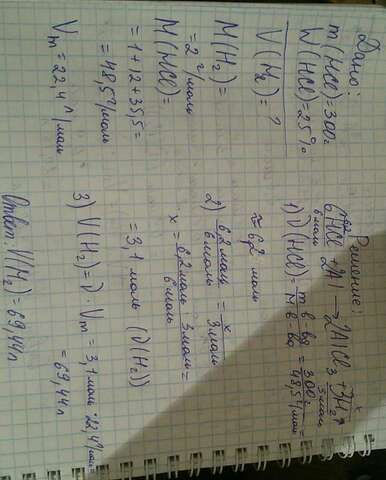 Дано:
m(HCl)=300г
W(HCl)=25%
V(H₂)=?
M(H₂)=
=2 г/моль
M(HCl)=
=1+12+35,5=
=48,5 г/моль
Vm=22,4 л/моль
Решение:
6HCl+2Al→2AlCl₃+3H₂↑
6 моль
x
3 моль
1) ν(HCl)= m в-ва / M в-ва = 300г / 48,5 г/моль =
≈6,2 моль
2) 6,2 моль / 6 моль = x / 3 моль
x = 6,2 моль · 3 моль / 6 моль =
=3,1 моль (ν(H₂))
3) V(H₂)=ν·Vm=3,1 моль·22,4 л/моль=
=69,44л
Ответ: V(H₂)=69,44л